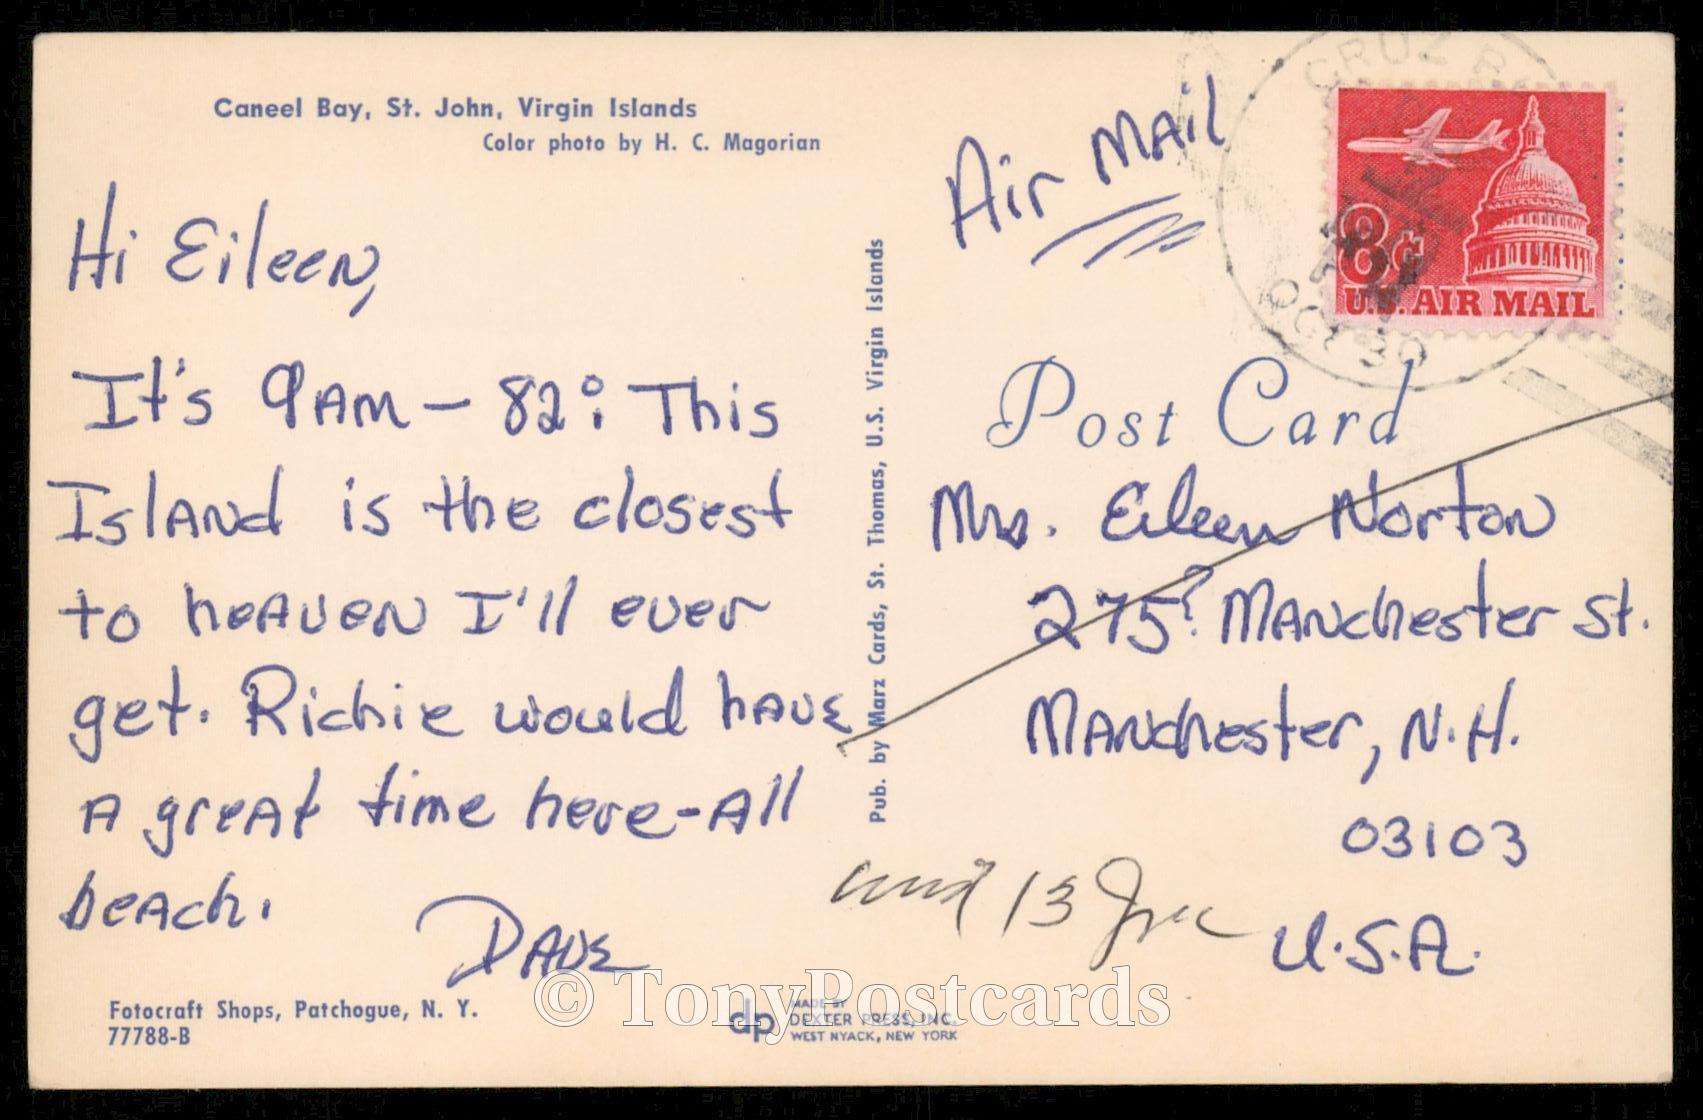 Caneel Bay, St. John, Virgin Islands
Color photo by H. C. Magorian
Hi Eileen,
It's 9AM – 82°! This
Island is the closest
to heaven I'll ever
get. Richie would have
a great time here-all
beach.
Dave
Fotocraft Shops, Patchogue, N. Y.
77788-B
Pub. by Marz Cards, St. Thomas, U.S. Virgin Islands
dp
MADE BY
DEXTER PRESS, INC.
WEST NYACK, NEW YORK
Air Mail
CRUZ B
OCT 30
8¢
U.S. AIR MAIL
Post Card
Mrs. Eileen Norton
275? Manchester St.
Manchester, N.H.
03103
U.S.A.
13
© TonyPostcards